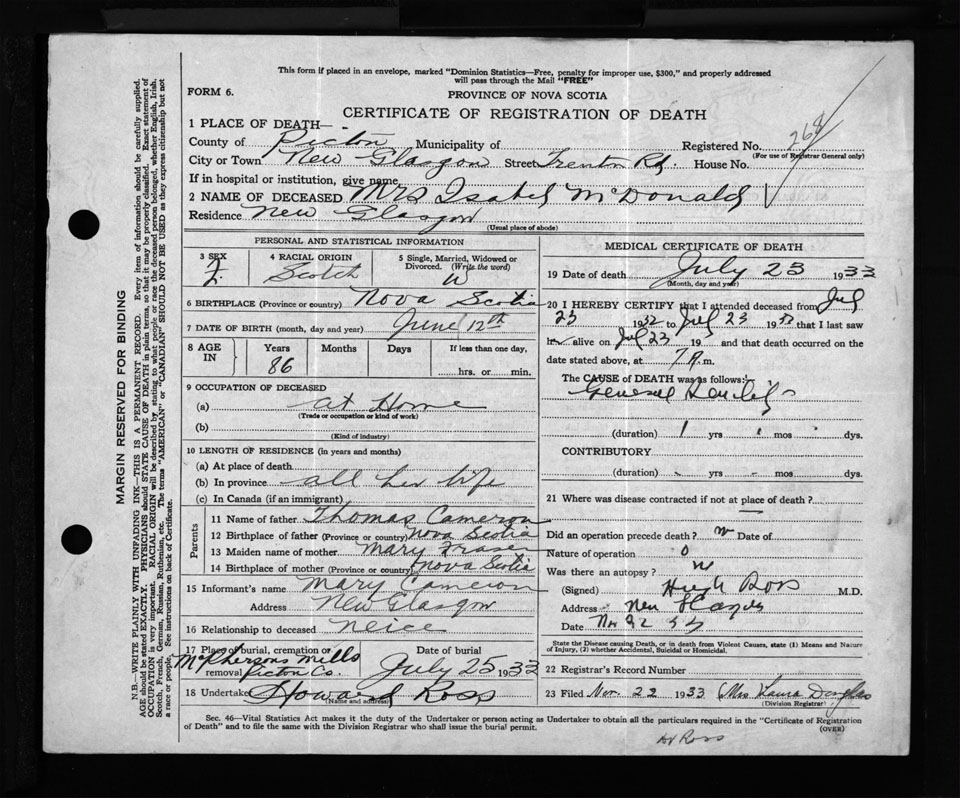 This form if placed in an envelope, marked "Dominion Statistics—Free, penalty for improper use, $300," and properly addressed
will pass through the Mail "FREE"
FORM 6.
PROVINCE OF NOVA SCOTIA
CERTIFICATE OF REGISTRATION OF DEATH
1 PLACE OF DEATH—
County of Pictou Municipality of Registered No. 268
(For use of Registrar General only)
City or Town New Glasgow Street Trenton Rd. House No.
If in hospital or institution, give name
2 NAME OF DECEASED Mrs Isabel McDonald
Residence New Glasgow
(Usual place of abode)
PERSONAL AND STATISTICAL INFORMATION
3 SEX F.
4 RACIAL ORIGIN Scotch
5 Single, Married, Widowed or Divorced. (Write the word) W
6 BIRTHPLACE (Province or country) Nova Scotia
7 DATE OF BIRTH (month, day and year) June 12th
8 AGE IN Years 86 Months Days If less than one day, hrs. or min.
9 OCCUPATION OF DECEASED
(a) at Home
(Trade or occupation or kind of work)
(b)
(Kind of industry)
10 LENGTH OF RESIDENCE (in years and months)
(a) At place of death
(b) In province all her life
(c) In Canada (if an immigrant)
Parents
11 Name of father Thomas Cameron
12 Birthplace of father (Province or country) Nova Scotia
13 Maiden name of mother Mary Fraser
14 Birthplace of mother (Province or country) Nova Scotia
15 Informant's name Mary Cameron
Address New Glasgow
16 Relationship to deceased Neice
17 Place of burial, cremation or removal McPhersons Mills Pictou Co.
Date of burial July 25 1933
18 Undertaker Howard Ross
(Name and address)
MEDICAL CERTIFICATE OF DEATH
19 Date of death July 23 1933
(Month, day and year)
20 I HEREBY CERTIFY that I attended deceased from July
23 1932 to July 23 19 that I last saw
alive on Jul 23 193 and that death occurred on the
date stated above, at 7 P.m.
The CAUSE of DEATH was as follows:
General
(duration) 1 yrs mos dys.
CONTRIBUTORY
(duration) yrs mos dys.
21 Where was disease contracted if not at place of death?
Did an operation precede death? Date of
Nature of operation
Was there an autopsy?
(Signed) Hugh Ross M.D.
Address New Glasgow
Date
State the Disease causing Death, or in death from Violent Causes, state (1) Means and Nature
of Injury, (2) whether Accidental, Suicidal or Homicidal.
22 Registrar's Record Number
23 Filed Nov. 22 1933 Mrs Laura Douglas
(Division Registrar)
Sec. 46—Vital Statistics Act makes it the duty of the Undertaker or person acting as Undertaker to obtain all the particulars required in the "Certificate of Registration
of Death" and to file the same with the Division Registrar who shall issue the burial permit.
(OVER)
H Ross
MARGIN RESERVED FOR BINDING
N.B.—WRITE PLAINLY WITH UNFADING INK—THIS IS A PERMANENT RECORD. Every item of information should be carefully supplied.
AGE should be stated EXACTLY. PHYSICIANS should STATE CAUSE OF DEATH in plain terms, so that it may be properly classified. Exact statement of
OCCUPATION is very important. RACIAL ORIGIN will be described by stating to what people or race the deceased person belonged, whether English, Irish,
Scotch, French, German, Russian, Ruthenian, etc. The terms "AMERICAN" or "CANADIAN" SHOULD NOT BE USED as they express citizenship but not
a race or people. See instructions on back of Certificate.